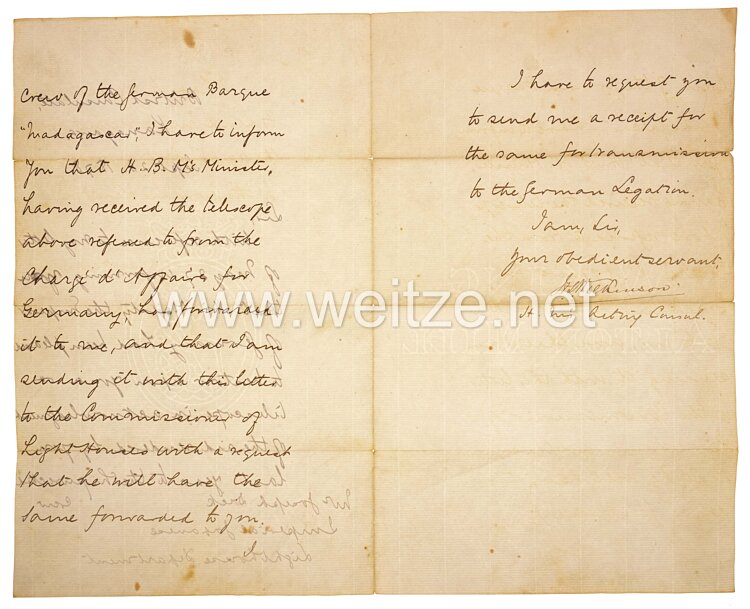 crew of the German Barque
"Madagascar", I have to inform
you that H. B. M's Minister,
having received the telescope
above referred to from the
Chargé d'Affaires for
Germany, has forwarded
it to me, and that I am
sending it with this letter
to the Commissioner of
Light Houses with a request
that he will have the
same forwarded to you.
I
I have to request you
to send me a receipt for
the same for transmission
to the German Legation.
I am, Sir,
Your obedient servant,
Wilkinson
H. M's Acting Consul.
www.weitze.net
www.weitze.net
www.weitze.net
Mr Joseph Dick
Light House Department